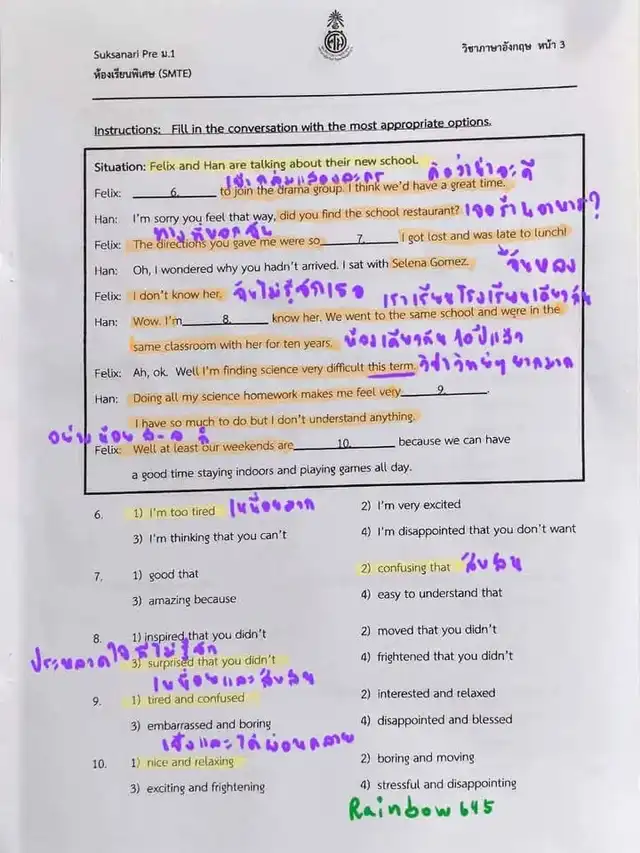 Suksanari Pre ม.1
วิชาภาษาอังกฤษ หน้า 3
ห้องเรียนพิเศษ (SMTE)
Instructions: Fill in the conversation with the most appropriate options.
Situation: Felix and Han are talking about their new school.
เข้ากลุ่มแสดงละคร คิดว่าน่าจะดี
Felix: 6. to join the drama group. I think we'd have a great time.
Han: I'm sorry you feel that way, did you find the school restaurant? เจอร้านอาหาร?
ทางที่บอกฉัน
Felix: The directions you gave me were so 7. I got lost and was late to lunch!
ฉันหลง
Han: Oh, I wondered why you hadn't arrived. I sat with Selena Gomez.
Felix: I don't know her. ฉันไม่รู้จักเธอ เราเรียนโรงเรียนเดียวกัน
Han: Wow. I'm 8. know her. We went to the same school and were in the
same classroom with her for ten years. ห้องเดียวกัน 10 ปีแล้ว
Felix: Ah, ok. Well I'm finding science very difficult this term. วิชาวิทย์ฯ ยากมาก
Han: Doing all my science homework makes me feel very 9. .
I have so much to do but I don't understand anything.
อย่างน้อย ส-อ ก็
Felix: Well at least our weekends are 10. because we can have
a good time staying indoors and playing games all day.
6. 1) I'm too tired เหนื่อยมาก 2) I'm very excited
3) I'm thinking that you can't 4) I'm disappointed that you don't want
7. 1) good that 2) confusing that สับสน
3) amazing because 4) easy to understand that
8. 1) inspired that you didn't 2) moved that you didn't
ประหลาดใจที่ไม่รู้จัก
3) surprised that you didn't 4) frightened that you didn't
เหนื่อยและสับสน
9. 1) tired and confused 2) interested and relaxed
3) embarrassed and boring 4) disappointed and blessed
และได้ผ่อนคลาย
10. 1) nice and relaxing 2) boring and moving
3) exciting and frightening 4) stressful and disappointing
Rainbow645